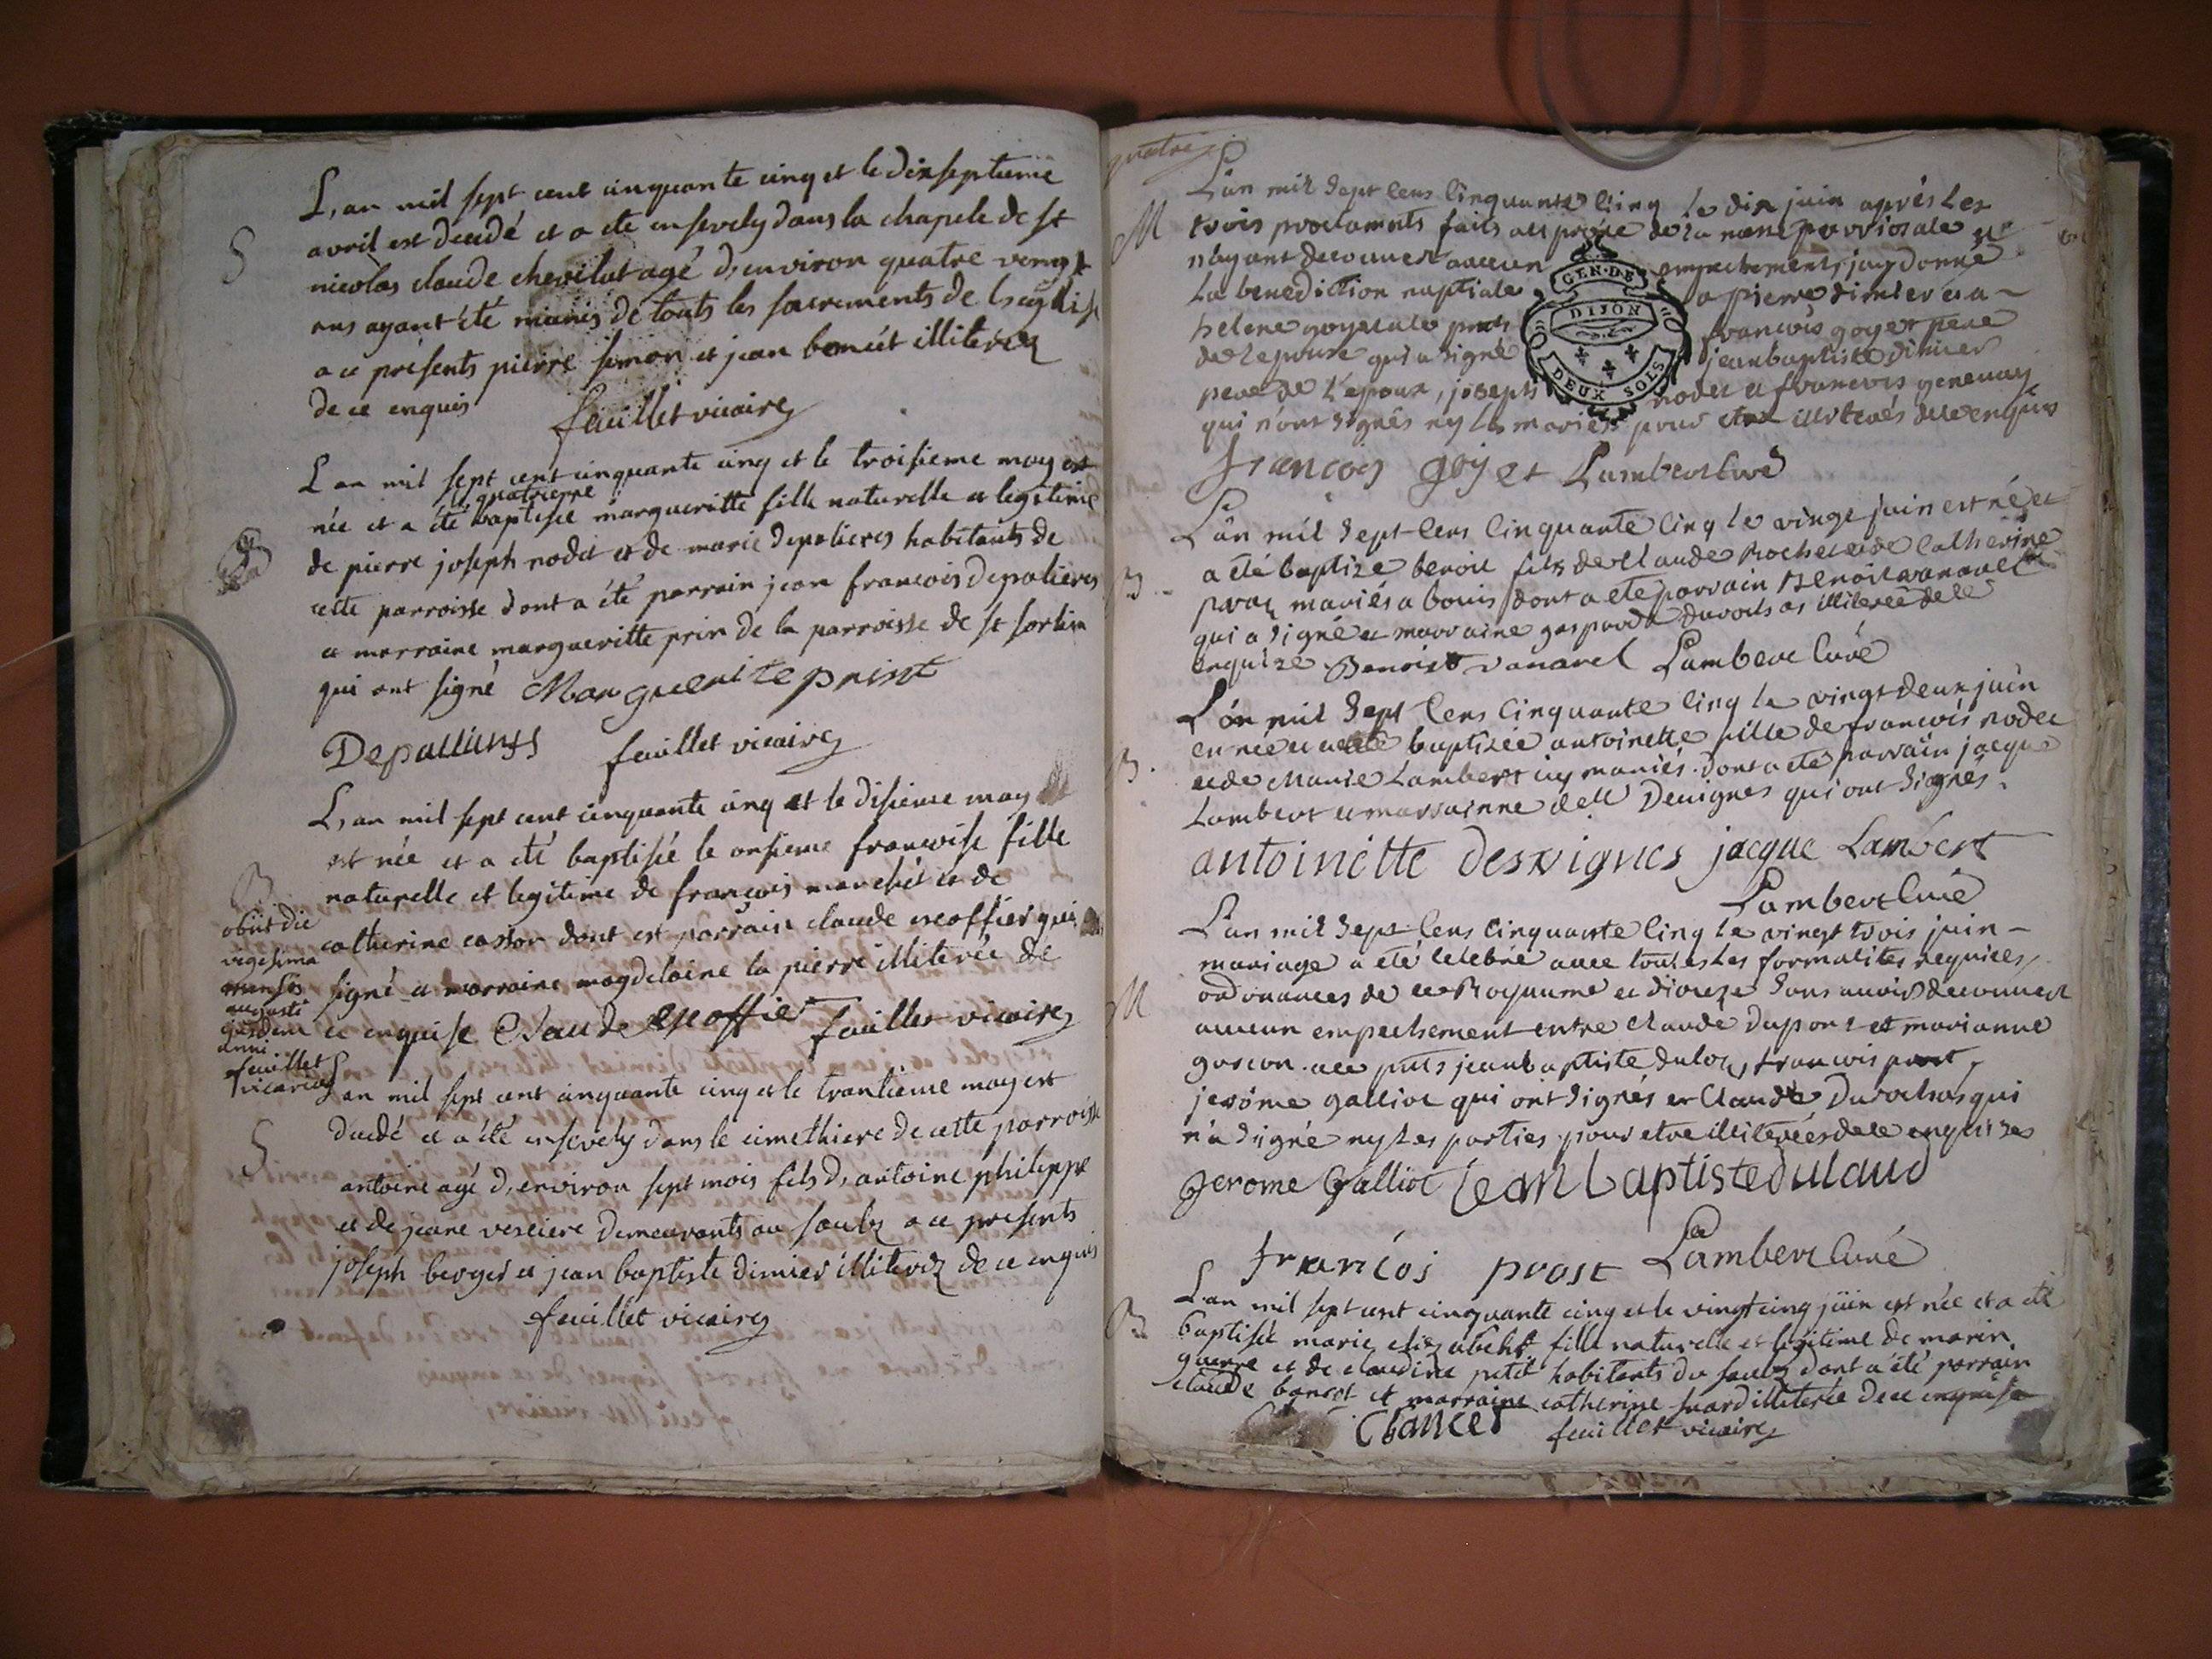 S
L, an mil sept cent cinquante cinq et le dixseptieme
avril est decedé et a eté ensevely dans la chapele de st
nicolas claude chevelut agé d, environ quatre vingt
ans ayant été munis de touts les sacrements de l'eglise
a ce présents pierre simon et jean benoit illiterez
de ce enquis
feuillet vicaire
L an mil sept cent cinquante cinq et le troisieme may est
quatrieme
née et a été baptisée margueritte fille naturelle et legitime
de pierre joseph nodet et de marie depalieres habitants de
cette parroisse dont a été parrain jean francois depalieres
et marraine margueritte prin de la parroisse de st sorlin
qui ont signé Marguerite prist
Depallieres feuillet vicaire
B
L, an mil sept cent cinquante cinq et le disieme may
est née et a eté baptisée le onsieme francoise fille
naturelle et legitime de francois marchet et de
catherine castor dont est parrain claude escoffier qui
signé et marraine magdelaine la pierre illiterée de
ce enquise Claude escoffier feuillet vicaire
obiit die
vigesima
mensis
augusti
ejusdem
anni
feuillet
vicarius
S
L an mil sept cent cinquante cinq et le trantieme may est
decedé et a été ensevely dans le cimethiere de cette parroisse
antoine agé d, environ sept mois fils d, antoine philippe
et de jeane vesciere demeurants au saulz a ce presents
joseph berger et jean baptiste dimier illiterez de ce enquis
feuillet vicaire
quatre
M
L'an mil Sept Cens Cinquante Cinq le dix juin aprés les
trois proclamats faits au prône de la messe parroissiale
n'ayant decouvert aucun empechement, jay donné
La benediction nuptiale a pierre dimier et a
helene goyet ce pnts francois goyet pere
de l'epouse qui a signé jean baptiste dimier
pere de l'epoux, joseph nodet et francois genevay
qui n'ont signés ny les mariés pour etre illiterés de ce enquis
GEN. DE
DIJON
DEUX SOLS
francois goyet Lambert Curé
B
L'an mil Sept Cens Cinquante Cinq le vingt juin est né et
a été baptize benoit fils de Claude Rochet et de Catherine
mariés a bouis dont a eté parrain Benoit vanarel
qui a signé et marraine gasparde Durochas illiterée de ce
enquize Benoist vanarel Lambert Curé
B
L'an mil Sept Cens Cinquante Cinq le vingt deux juin
est née et a eté baptizée antoinette fille de francois nodet
et de Marie Lambert mariés dont a eté parrain jacque
Lambert et marrainne delle Devignes qui ont signés.
antoinette desvignes jacque Lambert
Lambert Curé
M
L'an mil Sept Cens Cinquante Cinq le vingt trois juin
mariage a eté celebré avec toutes les formalités requises
ordonances de ce Royaume et dioceze sans avoir decouvert
aucun empechement entre Claude dupont et marianne
gascon. a ce pnts jean baptiste duloz, francois prost,
jerôme galliot qui ont signés et Claude Durochas qui
n'a signé ny les parties pour etre illiterées de ce enquizes
Jerome Galliot jean baptiste dulaud
francois prost Lambert Curé
B
L'an mil sept cent cinquante cinq et le vingt cinq juin est née et a eté
baptisée marie elizabeht fille naturelle et legitime de marin
guerre et de claudine petit habitants du saulz dont a été parrain
claude bancet et marraine catherine suard illiterée de ce enquise
C bancet feuillet vicaire